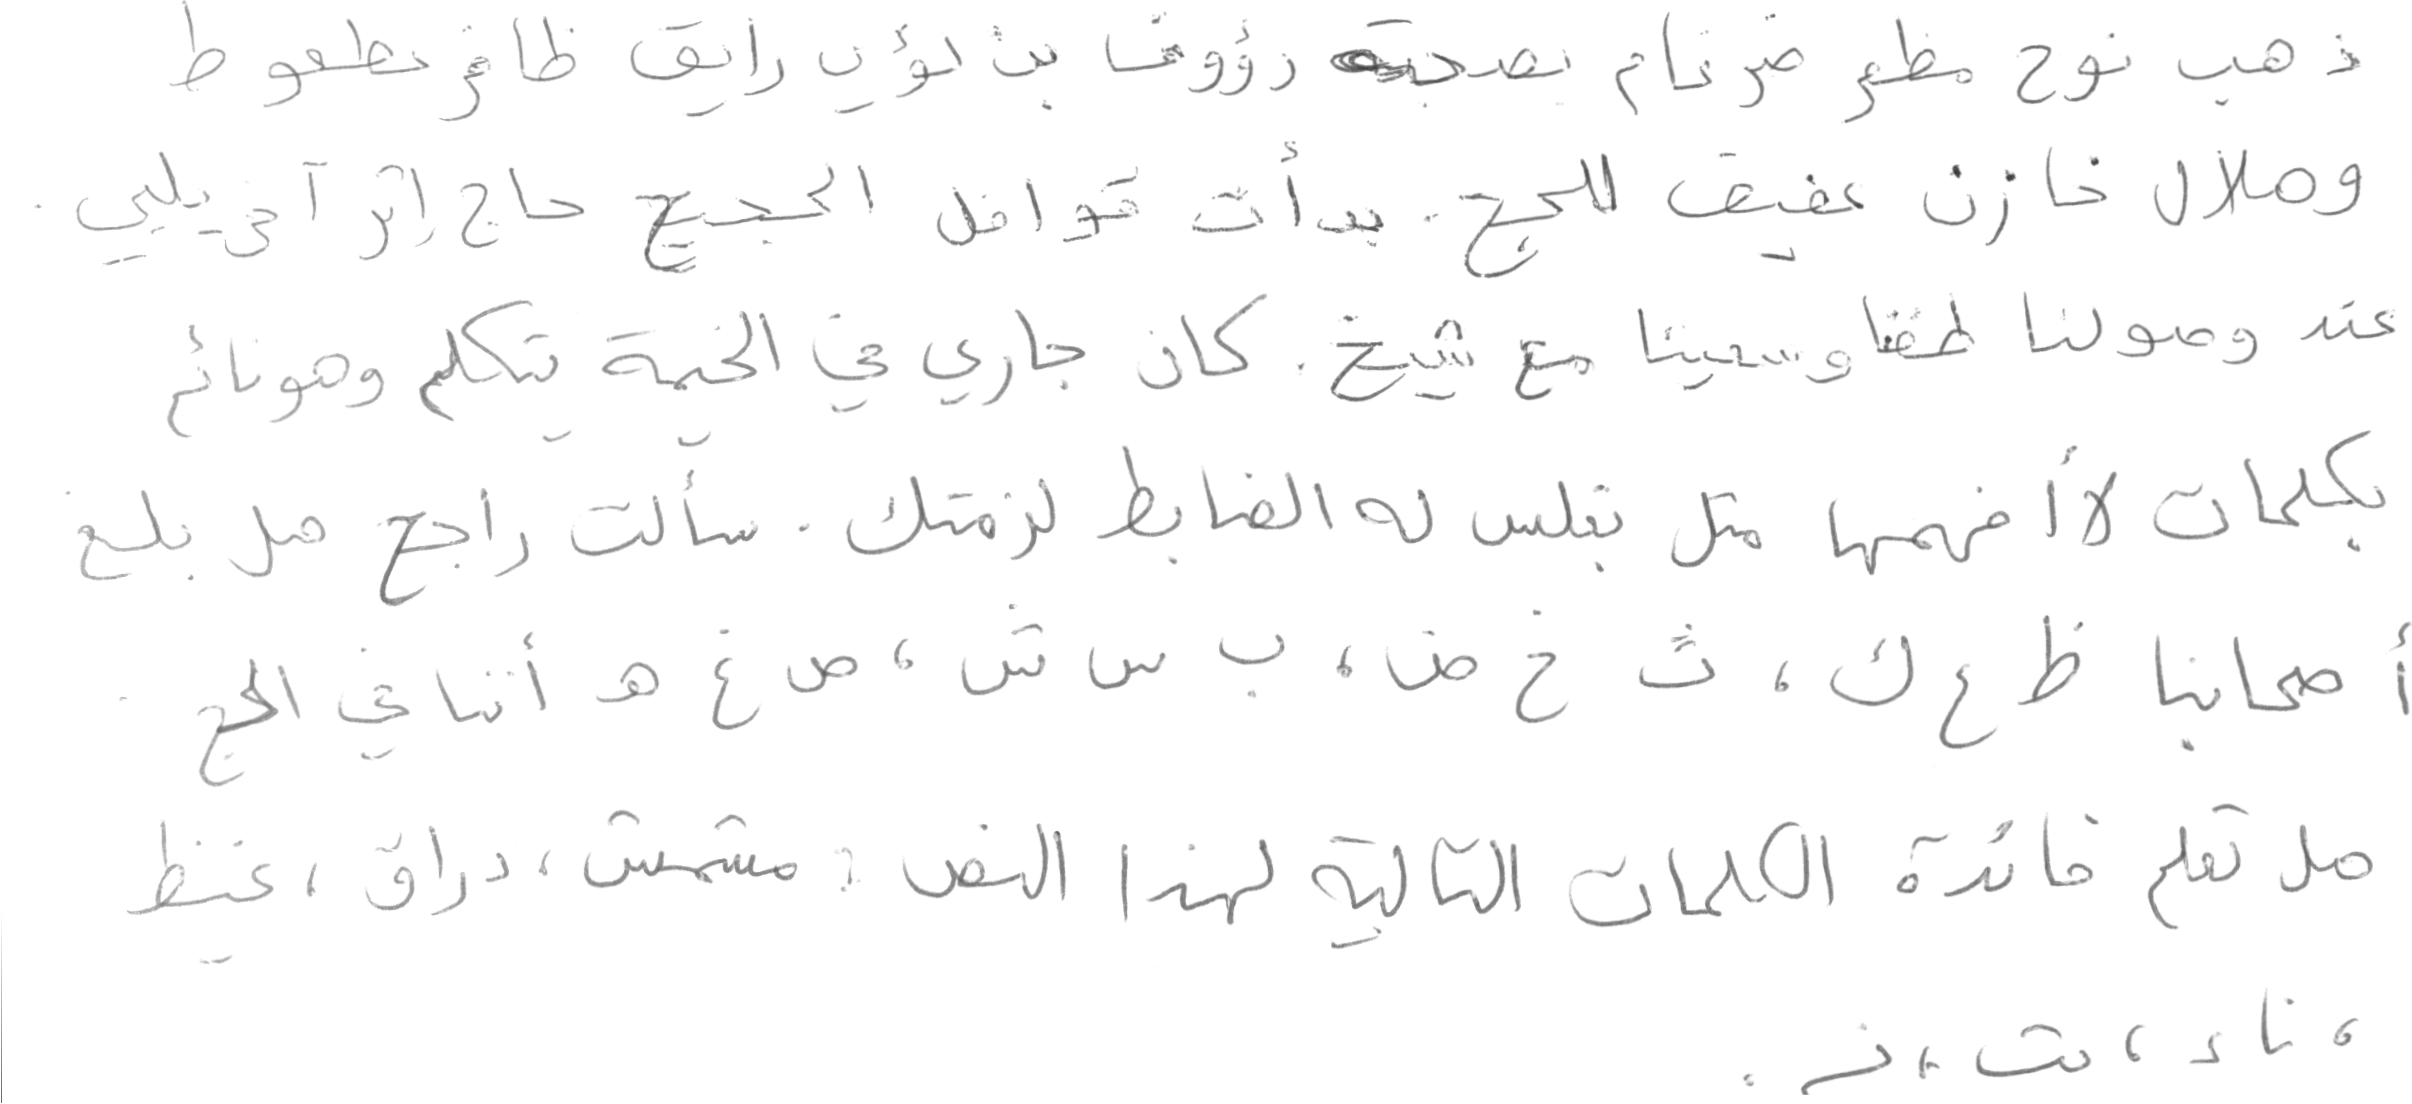 ذهب نوح مظفر ضرغام بصحبة رؤوف بن لؤي رايق ظافر عطعوط
وهلال خازن عفيف للحج. بدأت قوافل الحجيج حاج إثر آخر يلبي.
عند وصولنا طفنا وسعينا مع شيخ. كان جاري في الخيمة يتكلم وهو نائم
بكلمات لا أفهمها مثل بتلس له الضابط لزمتك. سألت راجح هل بلغ
أصحابنا ظ ع ك، ث خ ض، ب س ش، ص غ هـ أننا في الحج.
هل تعلم فائدة الكلمات التالية لهذا النص: مشمش، دراق، غيظ
، ناء، ت، ز.